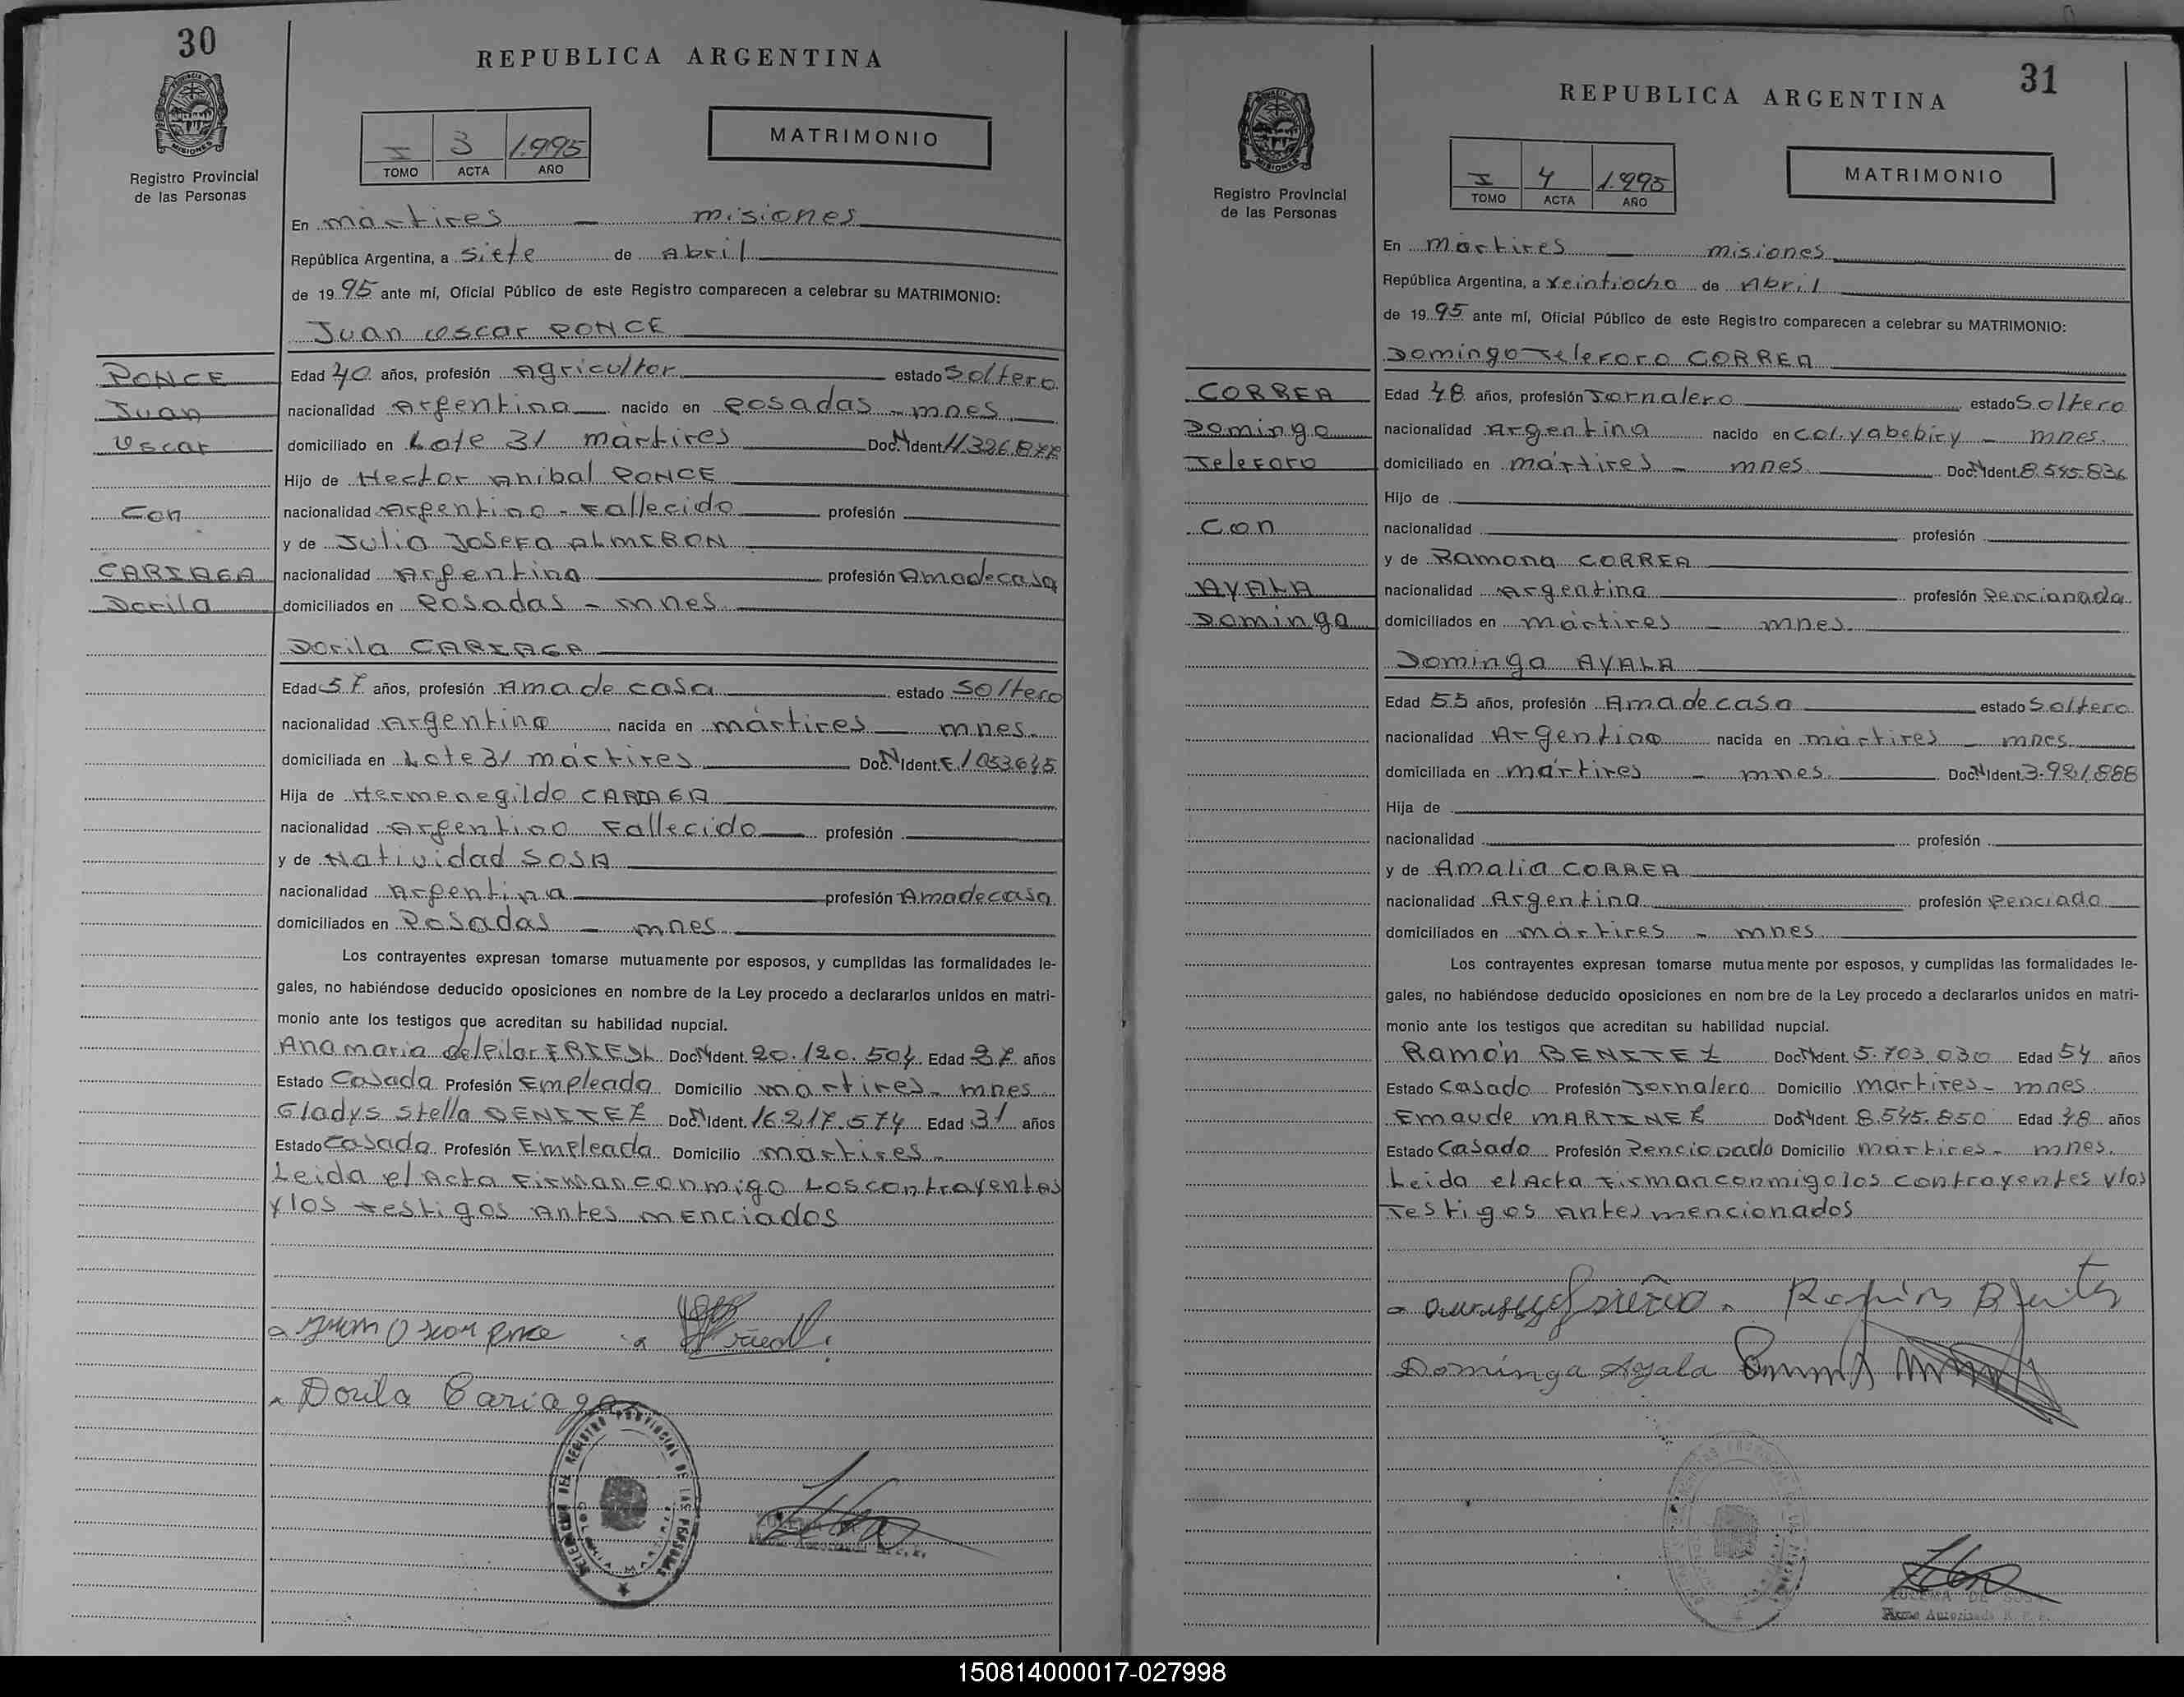 30
REPUBLICA ARGENTINA
Registro Provincial
de las Personas
I 3 1.995
TOMO ACTA AÑO
MATRIMONIO
En mártires — misiones
República Argentina, a siete de Abril
de 19 95 ante mí, Oficial Público de este Registro comparecen a celebrar su MATRIMONIO:
Juan Oscar PONCE
PONCE
Juan
Oscar
Con
CARIAGA
Dorila
Edad 40 años, profesión Agricultor estado Soltero
nacionalidad Argentina nacido en Posadas - mnes
domiciliado en Lote 31 mártires Doc. N Ident
Hijo de Hector Anibal PONCE
nacionalidad Argentino - Fallecido profesión
y de Julia Josefa ALMIRON
nacionalidad Argentina profesión Amadecasa
domiciliados en Posadas - mnes
Dorila CARIAGA
Edad 57 años, profesión Ama de casa estado Soltero
nacionalidad Argentina nacida en mártires — mnes
domiciliada en Lote 31 mártires Doc. N Ident.
Hija de Hermenegildo CARIAGA
nacionalidad Argentino Fallecido profesión
y de Natividad SOSA
nacionalidad Argentina profesión Amadecasa
domiciliados en Posadas — mnes
Los contrayentes expresan tomarse mutuamente por esposos, y cumplidas las formalidades le-
gales, no habiéndose deducido oposiciones en nombre de la Ley procedo a declararlos unidos en matri-
monio ante los testigos que acreditan su habilidad nupcial.
Ana maria del Pilar Doc. N Ident. 20.120.504 Edad años
Estado Casada Profesión Empleada Domicilio martires - mnes
Gladys Stella BENITEZ Doc. N Ident. 16.217.574 Edad 31 años
Estado Casada Profesión Empleada Domicilio martires -
Leida el Acta Firman conmigo Los contrayentes
y los testigos Antes menciados
Juan Oscar Ponce
Dorila Cariaga
31
REPUBLICA ARGENTINA
Registro Provincial
de las Personas
I 4 1.995
TOMO ACTA AÑO
MATRIMONIO
En mártires — misiones
República Argentina, a veintiocho de Abril
de 19 95 ante mí, Oficial Público de este Registro comparecen a celebrar su MATRIMONIO:
Domingo Teleforo CORREA
CORREA
Domingo
Teleforo
Con
AYALA
Dominga
Edad 48 años, profesión Jornalero estado Soltero
nacionalidad Argentina nacido en Col. yabebiry - mnes.
domiciliado en mártires - mnes Doc. N Ident. 8.545.836
Hijo de
nacionalidad profesión
y de Ramona CORREA
nacionalidad Argentina profesión Pencianada
domiciliados en mártires - mnes
Dominga AYALA
Edad 55 años, profesión Ama de casa estado Soltero
nacionalidad Argentina nacida en mártires - mnes
domiciliada en mártires - mnes Doc. N Ident. 3.921.888
Hija de
nacionalidad profesión
y de Amalia CORREA
nacionalidad Argentina profesión Penciada
domiciliados en mártires - mnes
Los contrayentes expresan tomarse mutuamente por esposos, y cumplidas las formalidades le-
gales, no habiéndose deducido oposiciones en nombre de la Ley procedo a declararlos unidos en matri-
monio ante los testigos que acreditan su habilidad nupcial.
Ramón BENITEZ Doc. N Ident. 5.703.030 Edad 54 años
Estado Casado Profesión Jornalero Domicilio martires - mnes
Emaude MARTINEZ Doc. N Ident. 8.545.850 Edad 48 años
Estado Casado Profesión Pencionado Domicilio martires - mnes.
Leida el Acta Firman conmigo los contrayentes y los
Testigos Antes mencionados
Dominga Ayala
150814000017-027998